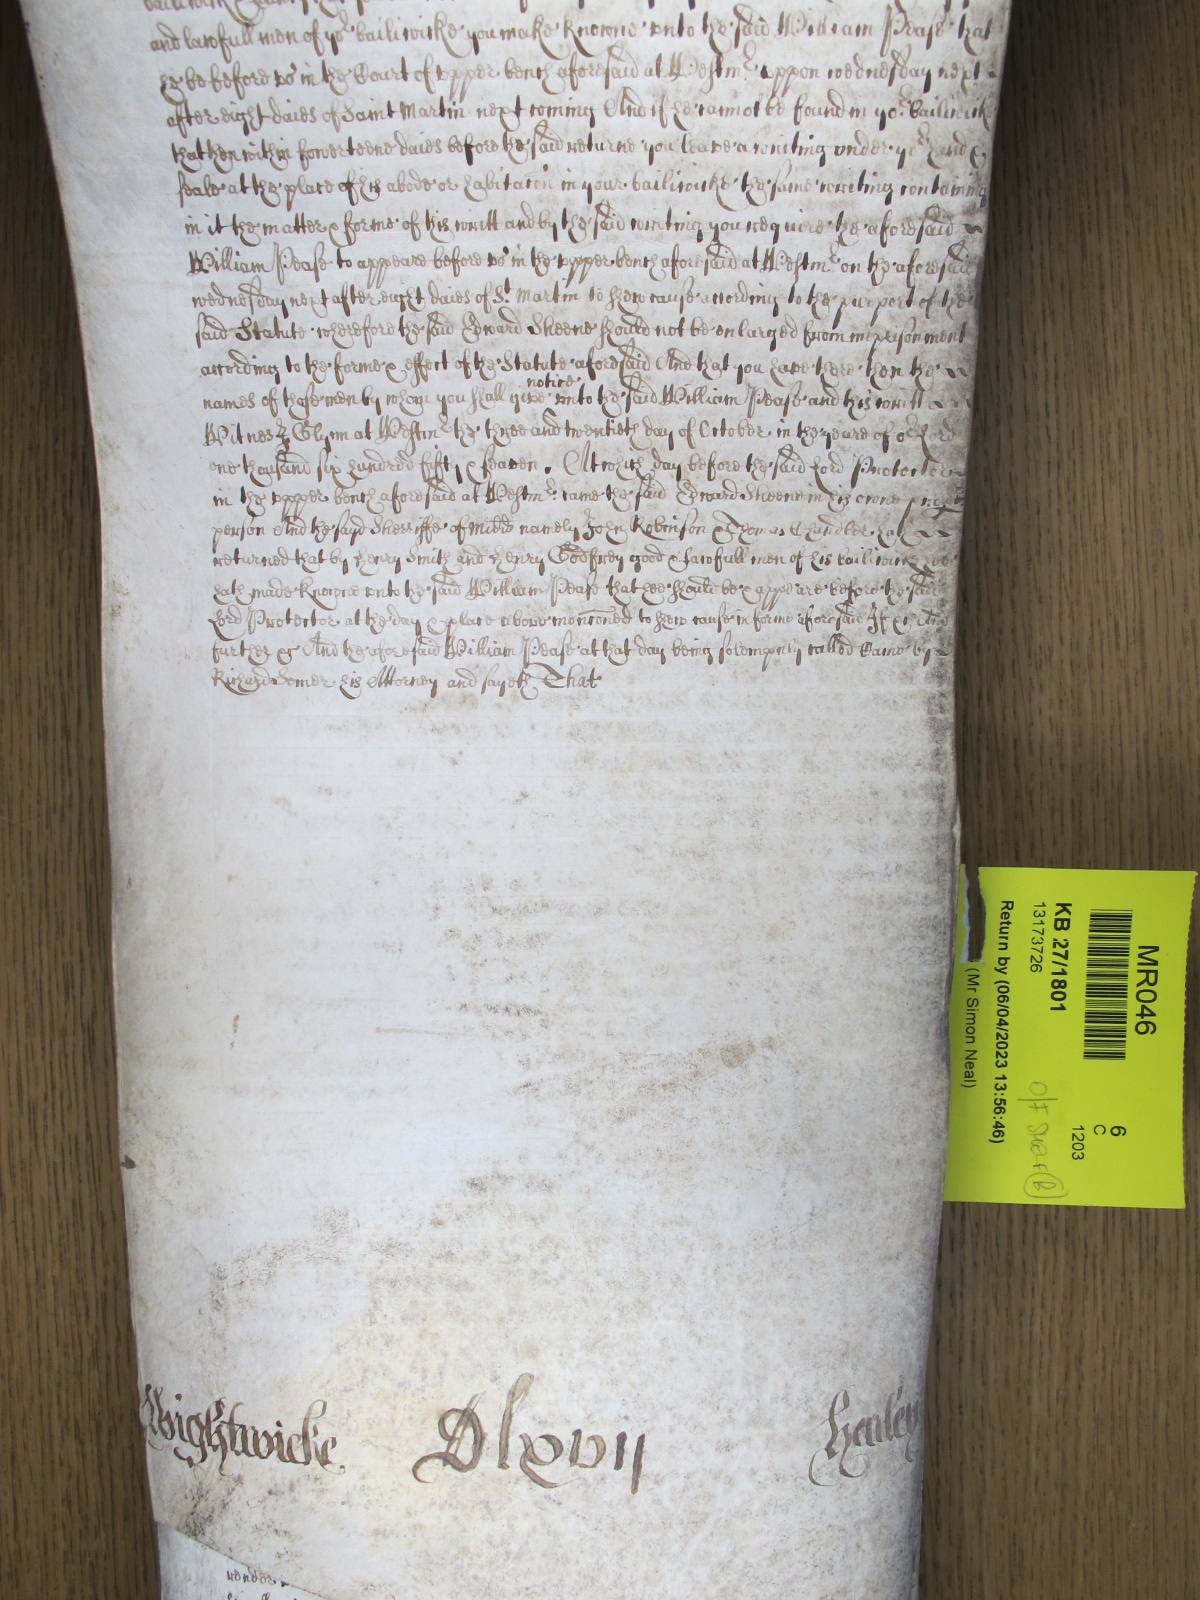 and lawfull men of yor bailiwicke you make knowne unto the said William Pease that
he be before us in the Court of upper bench aforesaid at Westmr uppon wednesday next
after eight daies of Saint Martin next coming And if he cannot be found in yor bailiwicke
that then within fowerteene daies before the said returne you leave a writing under yor hand &
seale at the place of his abode or habitacon in your bailiwicke the same writing containing
in it the matter & forme of this writt and by the said writing you require the aforesaid
William Pease to appeare before us in the upper bench aforesaid at Westmr on the aforesaid
wednesday next after eight daies of St Martin to shew cause according to the purport of the
said Statute wherefore the said Edward Skeene should not be enlarged from imprisonment
according to the forme & effect of the Statute aforesaid And that you have there then the
names of those men by whom you shall give notice unto the said William Pease and this writt
Witnes J Glynn at Westmr the three and twentieth day of October in the yeare of or Lord
one thousand six hundred fifty & seaven. At which day before the said Lord Protector
in the upper bench aforesaid at Westmr came the said Edward Skeene in his owne proper
person And the sayd Sherriffe of Midd namely John Robinson & Thomas Chandler hath
returned that by Henry Smith and Henry Godfrey good & lawfull men of his bailiwicke hee
hath made knowne unto the said William Pease that hee should be & appeare before the said
Lord Protector at the day & place above mentioned to shew cause in forme aforesaid If &c And
further &c And the aforesaid William Pease at that day being solempnly called Came by
Richard Somer his Attorney and sayeth That
Wightwicke Dlxvii Henley
MR046
6
C
1203
KB 27/1801
13173726
Return by (06/04/2023 13:56:46)
(Mr Simon Neal)